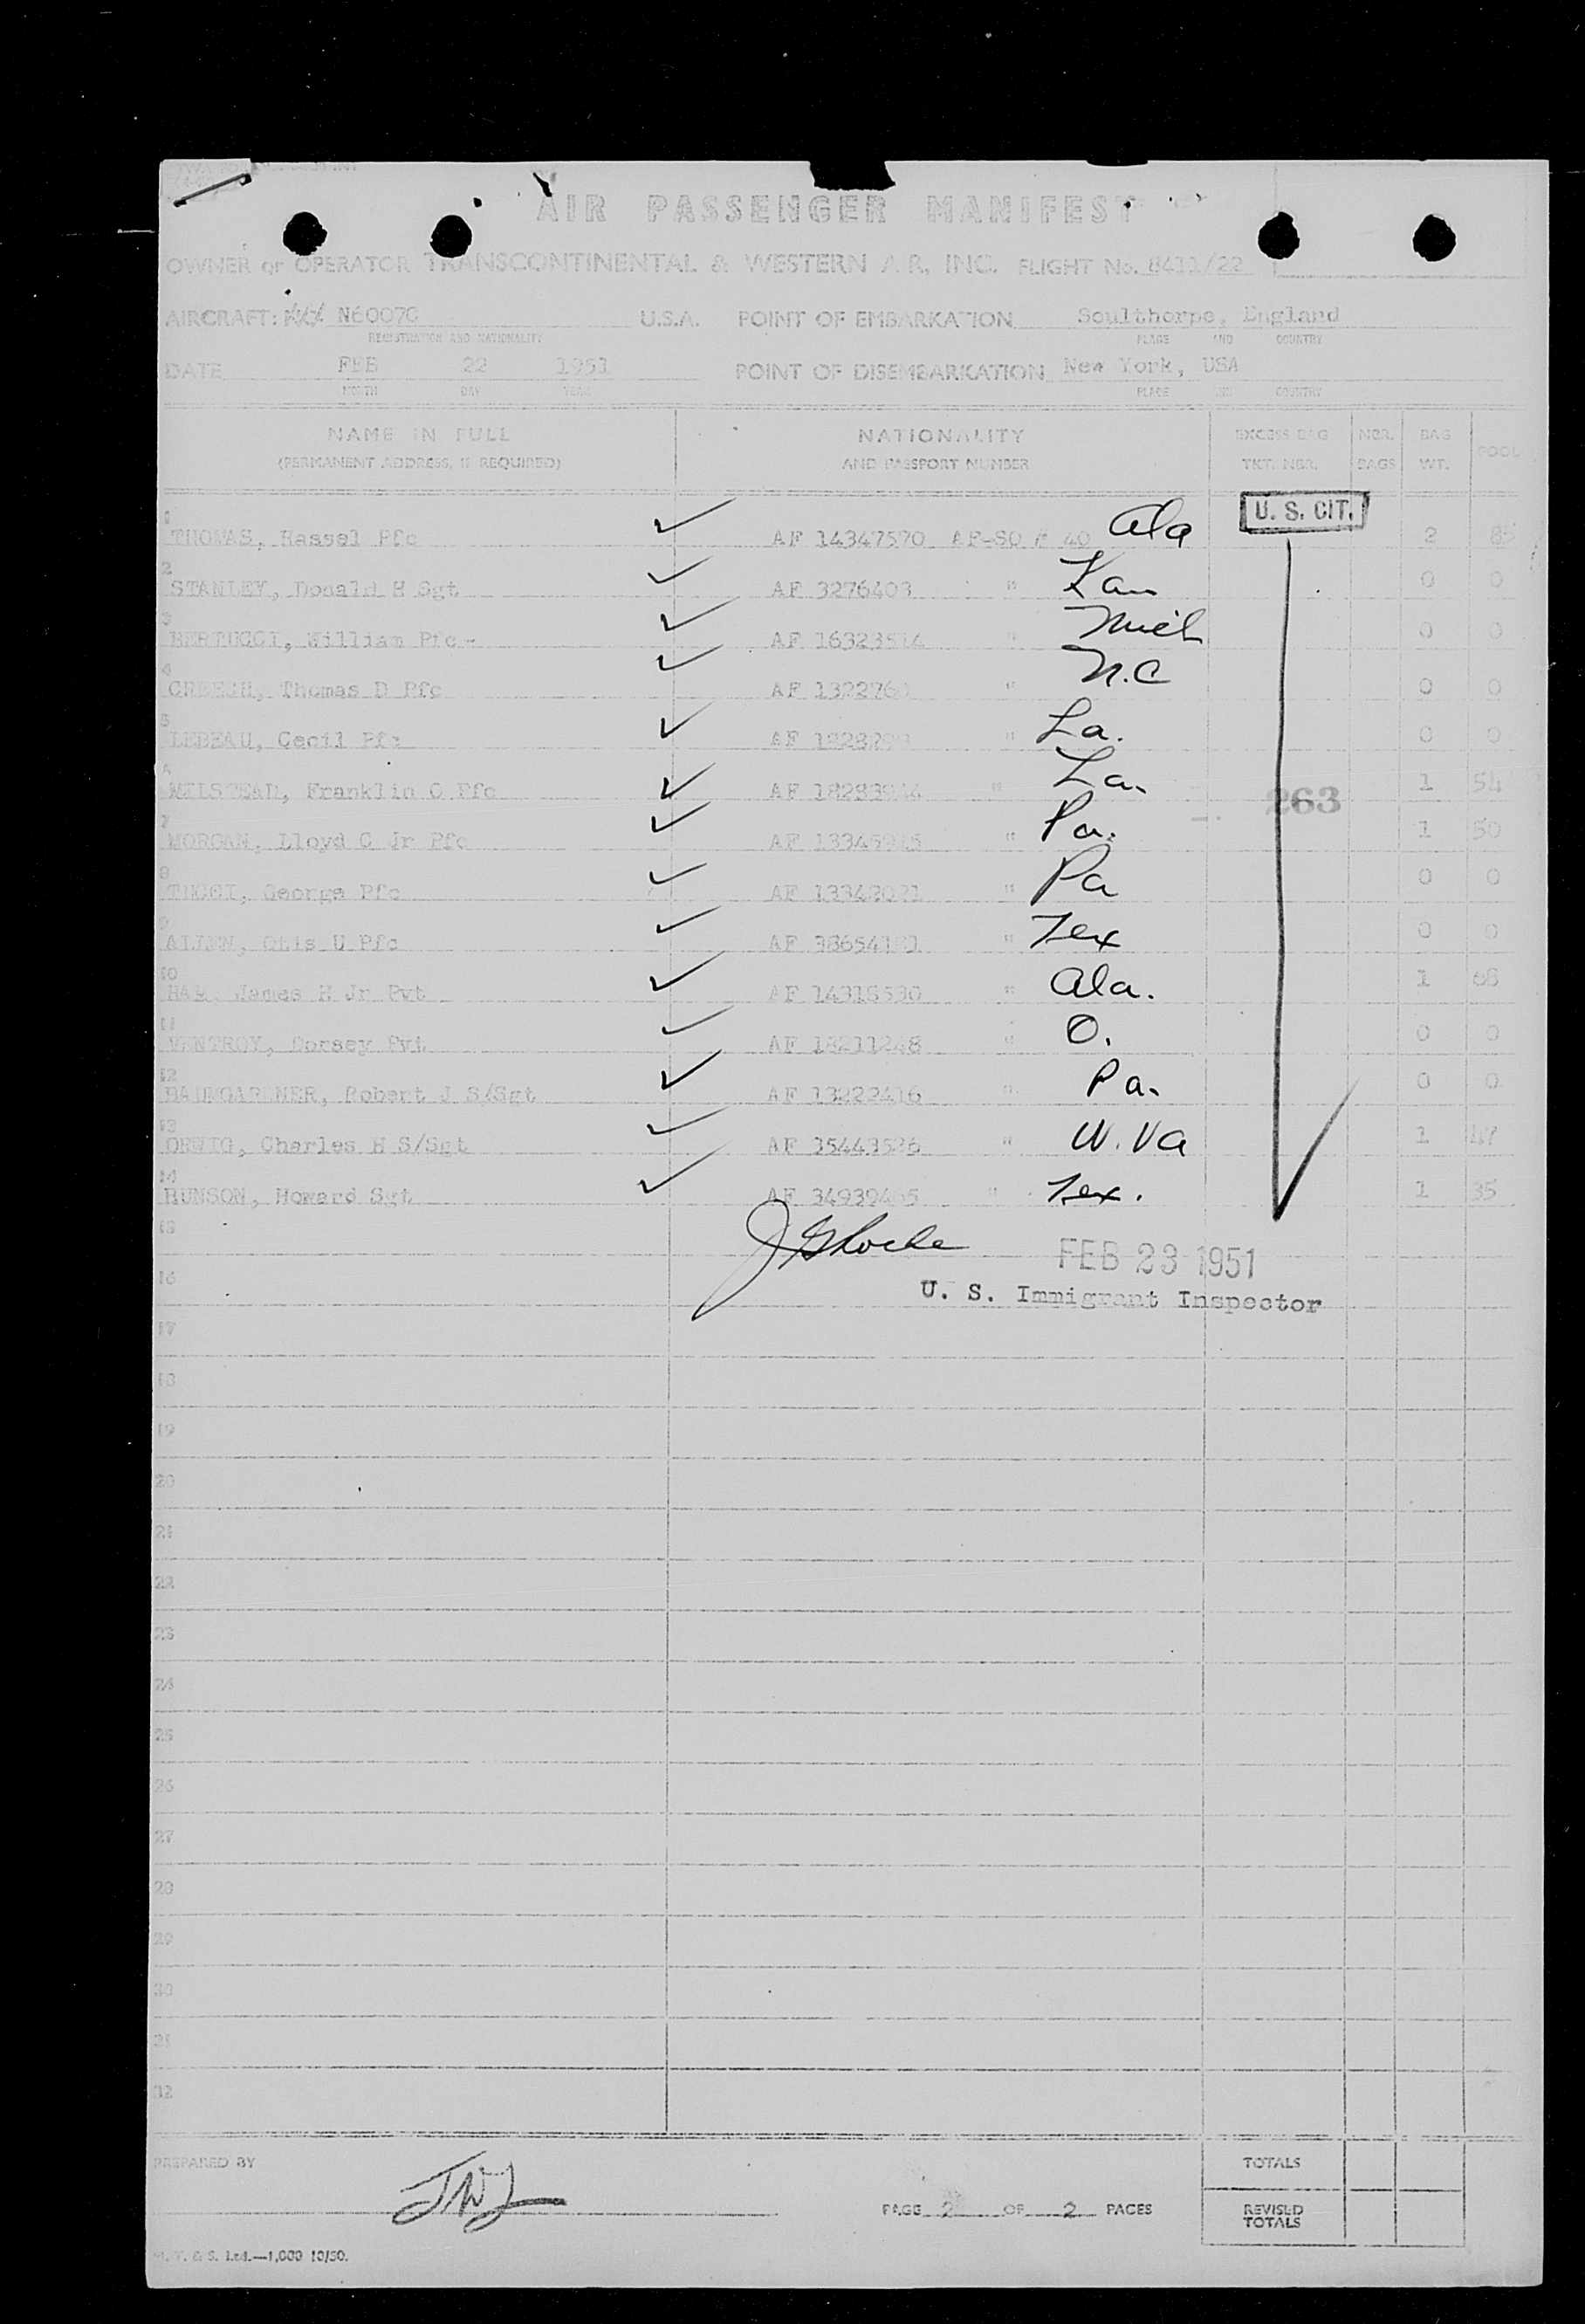 AIR PASSENGER MANIFEST
OWNER or OPERATOR TRANSCONTINENTAL & WESTERN AIR, INC. FLIGHT No. 8411/22
AIRCRAFT: N6007C U.S.A. POINT OF EMBARKATION Soulthorpe, England
REGISTRATION AND NATIONALITY PLACE AND COUNTRY
DATE FEB 22 1951 POINT OF DISEMBARKATION New York, USA
MONTH DAY YEAR PLACE AND COUNTRY
NAME IN FULL NATIONALITY EXCESS BAG NBR. BAG POOL
(PERMANENT ADDRESS, IF REQUIRED) AND PASSPORT NUMBER TKT. NBR. BAGS WT.
U. S. CIT.
1 THOMAS, Hassel Pfc ✓ AF 14347570 AF-SO # 40 Ala 2 85
2 STANLEY, Donald H Sgt ✓ AF 3276403 " Kan 0 0
3 BERTUCCI, William Pfc - ✓ AF " Mich 0 0
4 Thomas D Pfc ✓ AF " N.C 0 0
5 LEBEAU, Cecil Pfc ✓ AF " La. 0 0
6 MILSTEAD, Franklin O Pfc ✓ AF " La. 1 54
263
7 MORGAN, Lloyd C Jr Pfc ✓ AF " Pa. 1 50
8 TUCCI, George Pfc ✓ AF " Pa 0 0
9 ALLEN, Otis U Pfc ✓ AF " Tex 0 0
10 James H Jr Pvt ✓ AF 14318530 " Ala. 1 68
11 VENTROY, Dorsey Pvt ✓ AF " O. 0 0
12 BAUMGARDNER, Robert J S/Sgt ✓ AF 13222416 " Pa. 0 0
13 ORWIG, Charles H S/Sgt ✓ AF " W. Va 1 47
14 RUNSON, Howard Sgt ✓ AF " Tex. 1 35
15
FEB 23 1951
16 U. S. Immigrant Inspector
17
18
19
20
21
22
23
24
25
26
27
28
29
30
31
32
PREPARED BY TOTALS
PAGE 2 OF 2 PACES REVISED TOTALS
Ltd.—1,000 10/50.